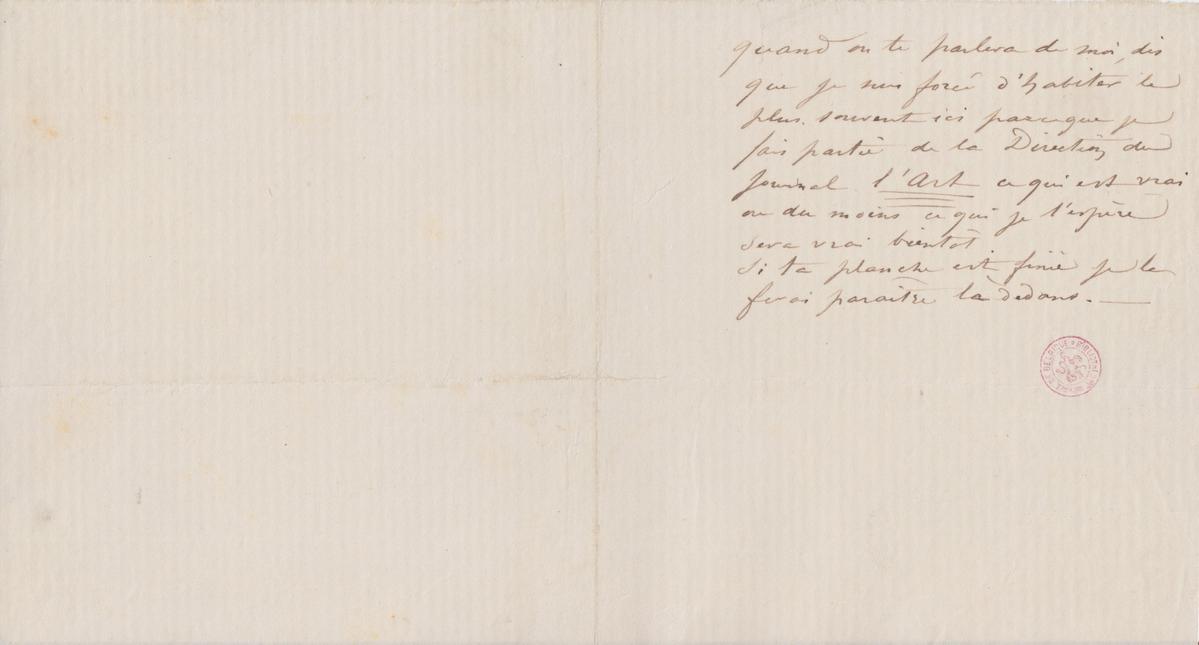 quand on te parlera de moi, dis
que je suis forcé d'habiter le
plus souvent ici parceque je
fais partie de la Direction du
journal l'Art ce qui est vrai
ou du moins ce qui je l'espère
sera vrai bientôt
Si ta planche est finie je la
ferai paraitre là dedans. —